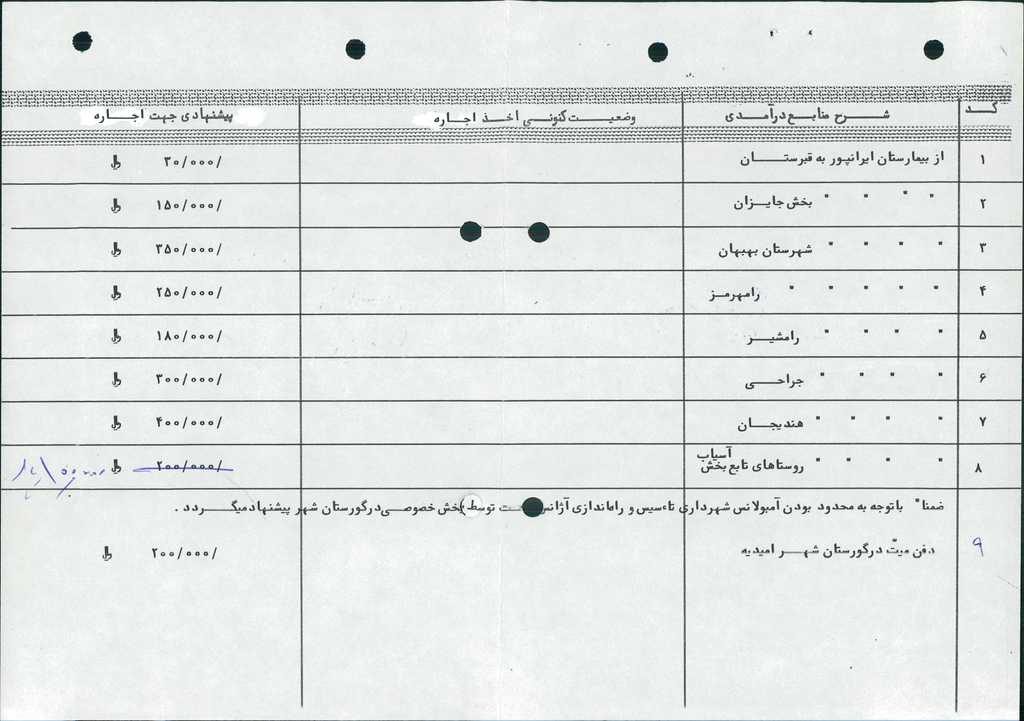 کد شرح منابع درآمدی وضعیت کنونی اخذ اجاره پیشنهادی جهت اجاره
۱ از بیمارستان ایرانپور به قبرستان ۳۰/۰۰۰/
۲ " " " " بخش جایزان ۱۵۰/۰۰۰/
۳ " " " " شهرستان بهبهان ۳۵۰/۰۰۰/
۴ " " " " " رامهرمز ۲۵۰/۰۰۰/
۵ " " " " رامشیر ۱۸۰/۰۰۰/
۶ " " " " جراحی ۳۰۰/۰۰۰/
۷ " " " " هندیجان ۴۰۰/۰۰۰/
۸ " " " " روستاهای تابع بخش آسیاب ۲۰۰/۰۰۰/
ضمنا" باتوجه به محدود بودن آمبولانس شهرداری تاسیس و راه‌اندازی آژانس توسط بخش خصوصی در گورستان شهر پیشنهاد میگردد .
۹ دفن میت در گورستان شهر امیدیه ۲۰۰/۰۰۰/